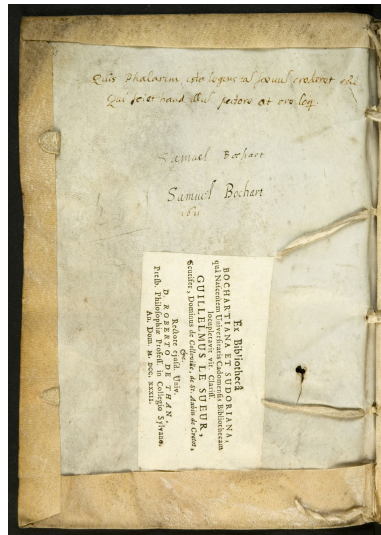 Quis Phalarim ista legens tā sævus crederet
Qui sciet haud illud pectore at ore loq.
Samuel Bochart
Samuel Bochart
1611
Ex Bibliothecâ
BOCHARTIANA ET SUDORIANA,
quâ Nascentem Universitatis Cadomensis Bibliothecam
locupletavit vir Clariss.
GUILLELMUS LE SUEUR,
Scutifer, Dominus de Colleville, de St. Aubin de Cretot,
&c.
Rectore ejusd. Univ.
D. ROBERTO DE THAN,
Presb. Philosophiæ Profess. in Collegio Sylvano,
An. Dom. M. DCC. XXXII.